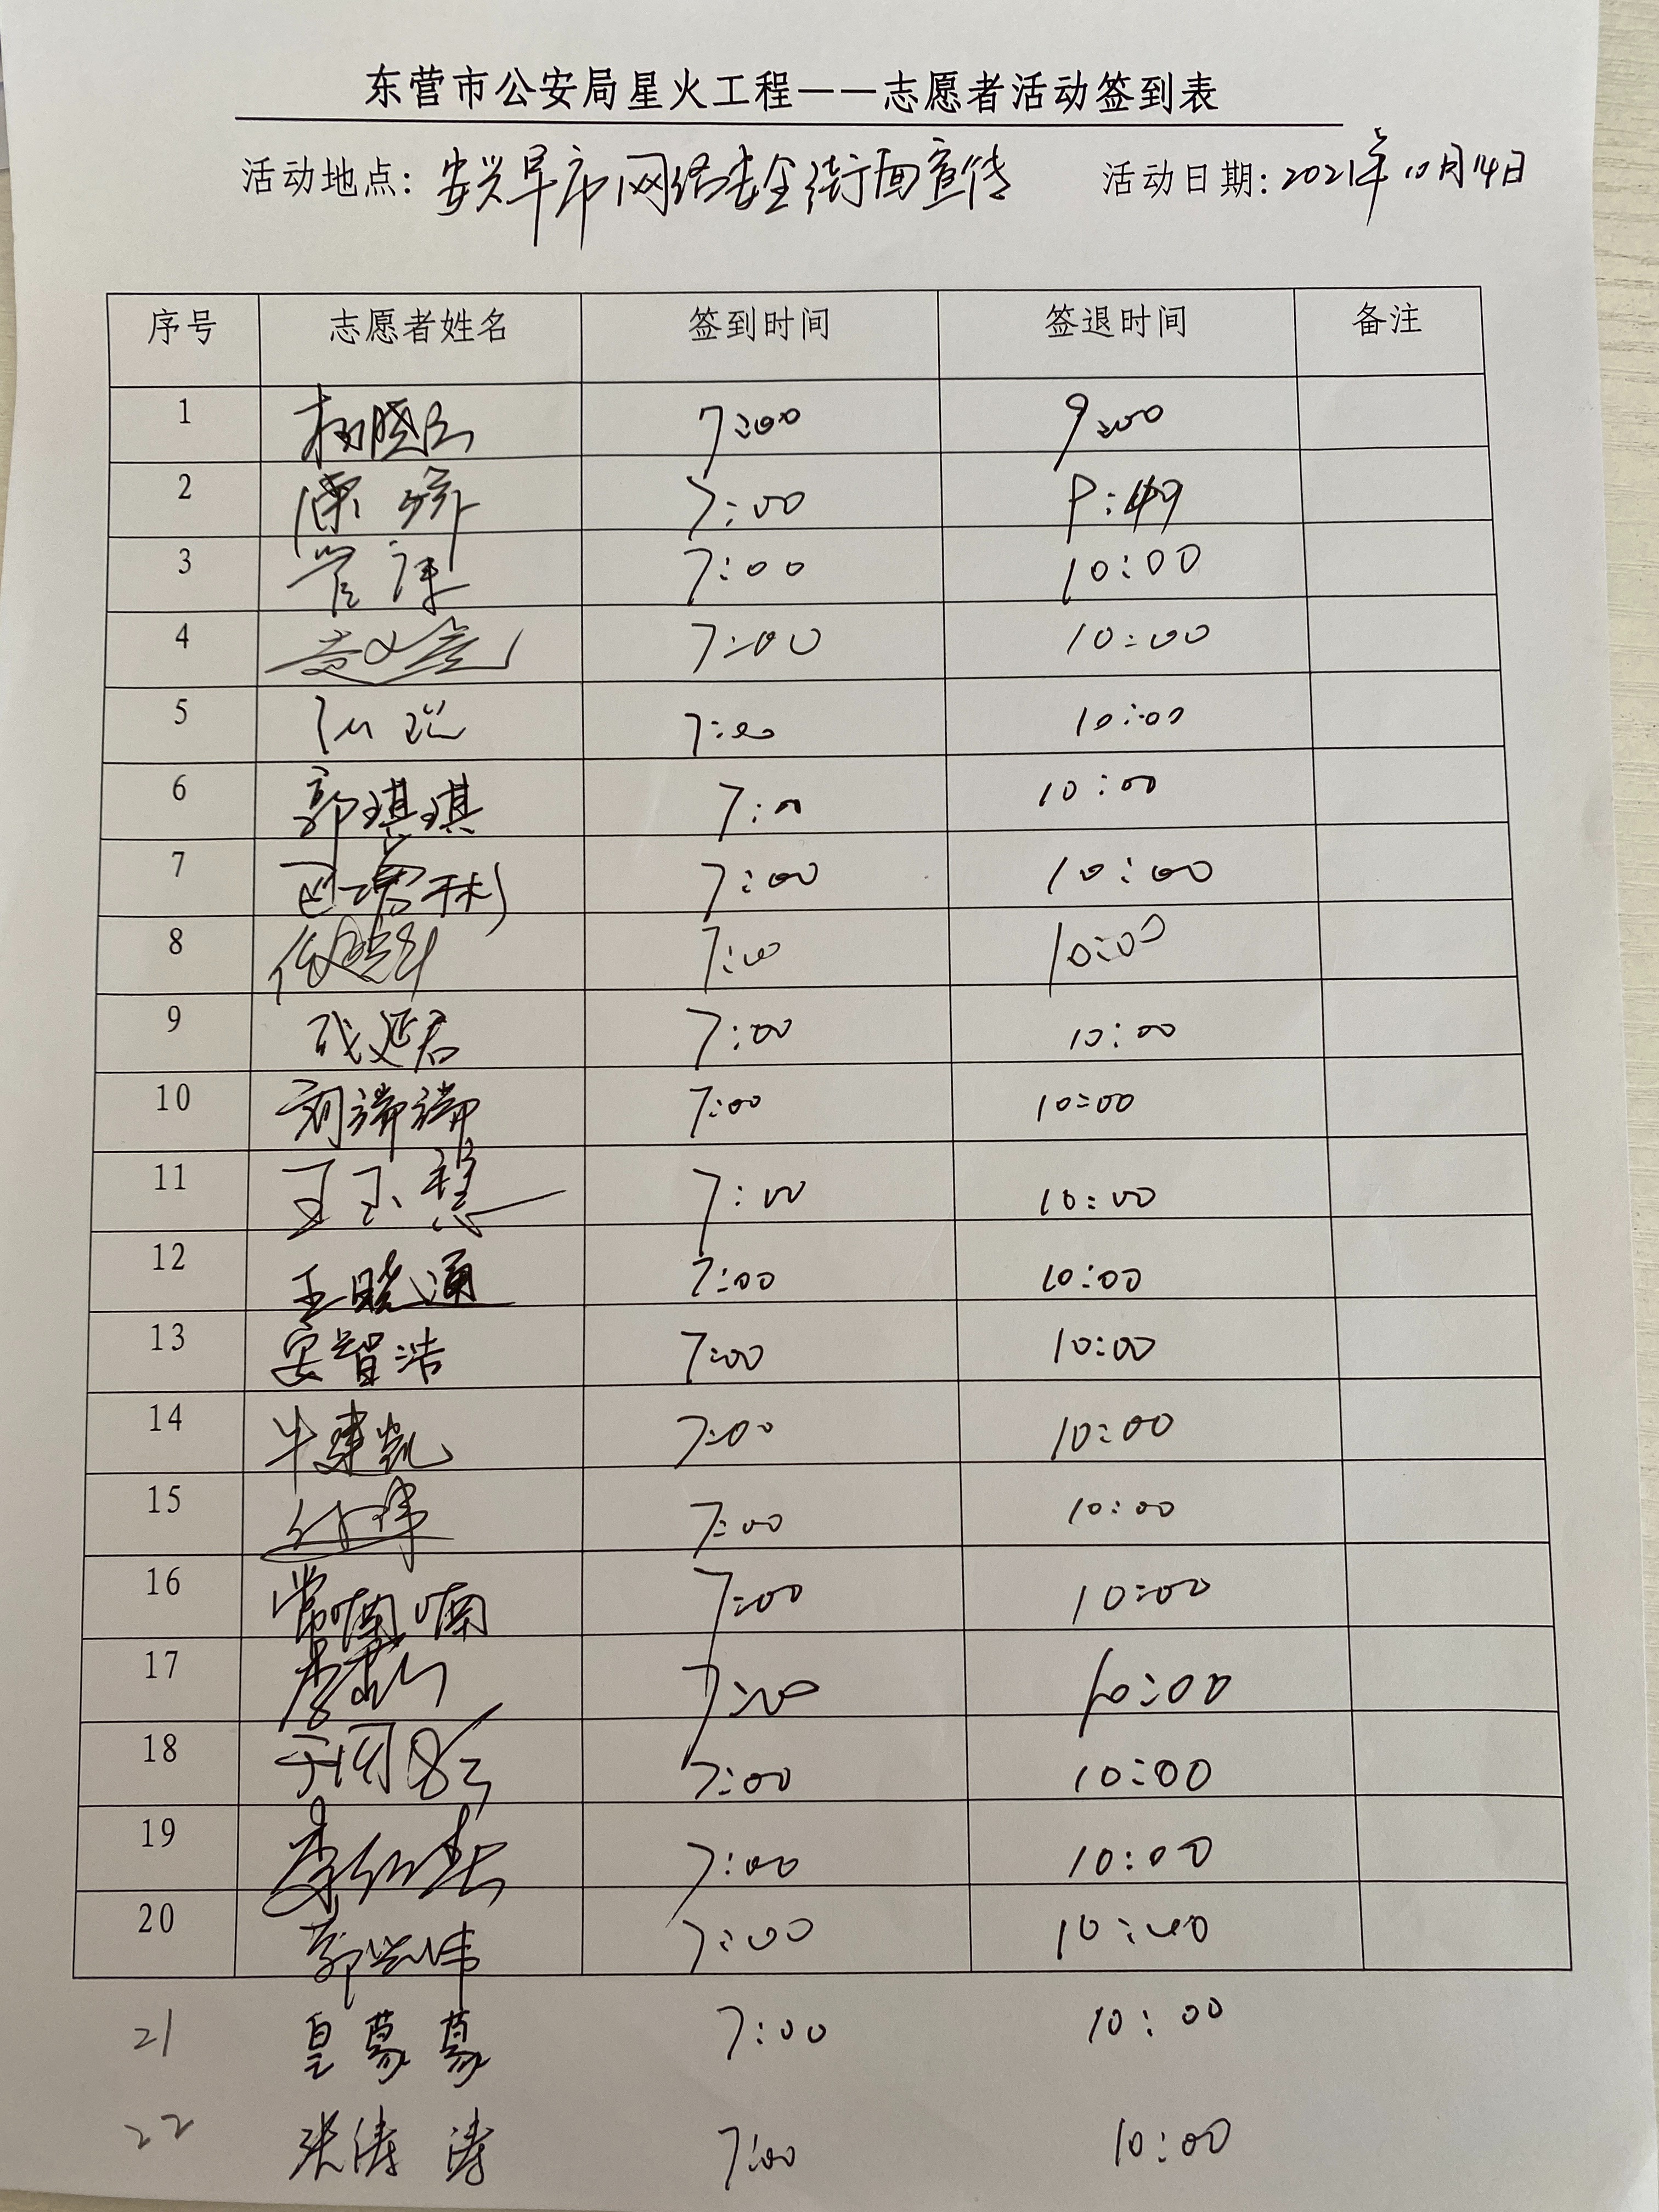 东营市公安局星火工程——志愿者活动签到表
活动地点: 安兴早市网络安全街面宣传 活动日期: 2021年10月14日
序号 志愿者姓名 签到时间 签退时间 备注
1 7:00 9:00
2 7:00
3 7:00 10:00
4 7:00 10:00
5 7:00 10:00
6 郭琪琪 7:00 10:00
7 7:00 10:00
8 7:00 10:00
9 延君 7:00 10:00
10 7:00 10:00
11 王玉慧 7:00 10:00
12 王晓通 7:00 10:00
13 安智浩 7:00 10:00
14 牛建凯 7:00 10:00
15 7:00 10:00
16 常喃喃 7:00 10:00
17 7:00 10:00
18 7:00 10:00
19 7:00 10:00
20 7:00 10:00
21 7:00 10:00
22 张涛涛 7:00 10:00